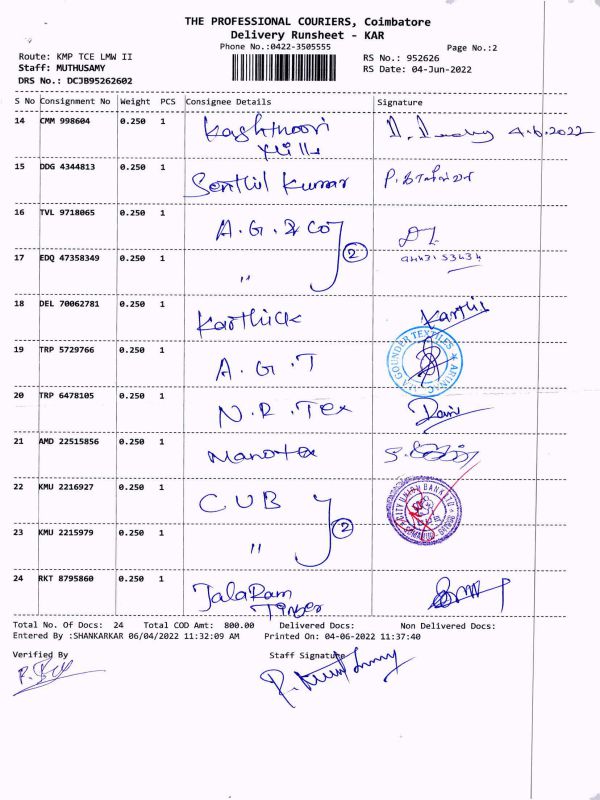 THE PROFESSIONAL COURIERS, Coimbatore
Delivery Runsheet - KAR
Phone No.:0422-3505555
Page No.:2
Route: KMP TCE LMW II
RS No.: 952626
Staff: MUTHUSAMY
RS Date: 04-Jun-2022
DRS No.: DCJB95262602
S No Consignment No Weight PCS Consignee Details Signature
14 CMM 998604 0.250 1 4.6.2022
15 DDG 4344813 0.250 1 Senthil Kumar
16 TVL 9718065 0.250 1 A.G. & Co
2
17 EDQ 47358349 0.250 1 "
18 DEL 70062781 0.250 1 Karthick
19 TRP 5729766 0.250 1 A.G.T
20 TRP 6478105 0.250 1 N.R.Tex
21 AMD 22515856 0.250 1
22 KMU 2216927 0.250 1 CUB CITY UNION BANK LTD
2
23 KMU 2215979 0.250 1 "
24 RKT 8795860 0.250 1 JalaRam
Total No. Of Docs: 24 Total COD Amt: 800.00 Delivered Docs: Non Delivered Docs:
Entered By :SHANKARKAR 06/04/2022 11:32:09 AM Printed On: 04-06-2022 11:37:40
Verified By Staff Signature